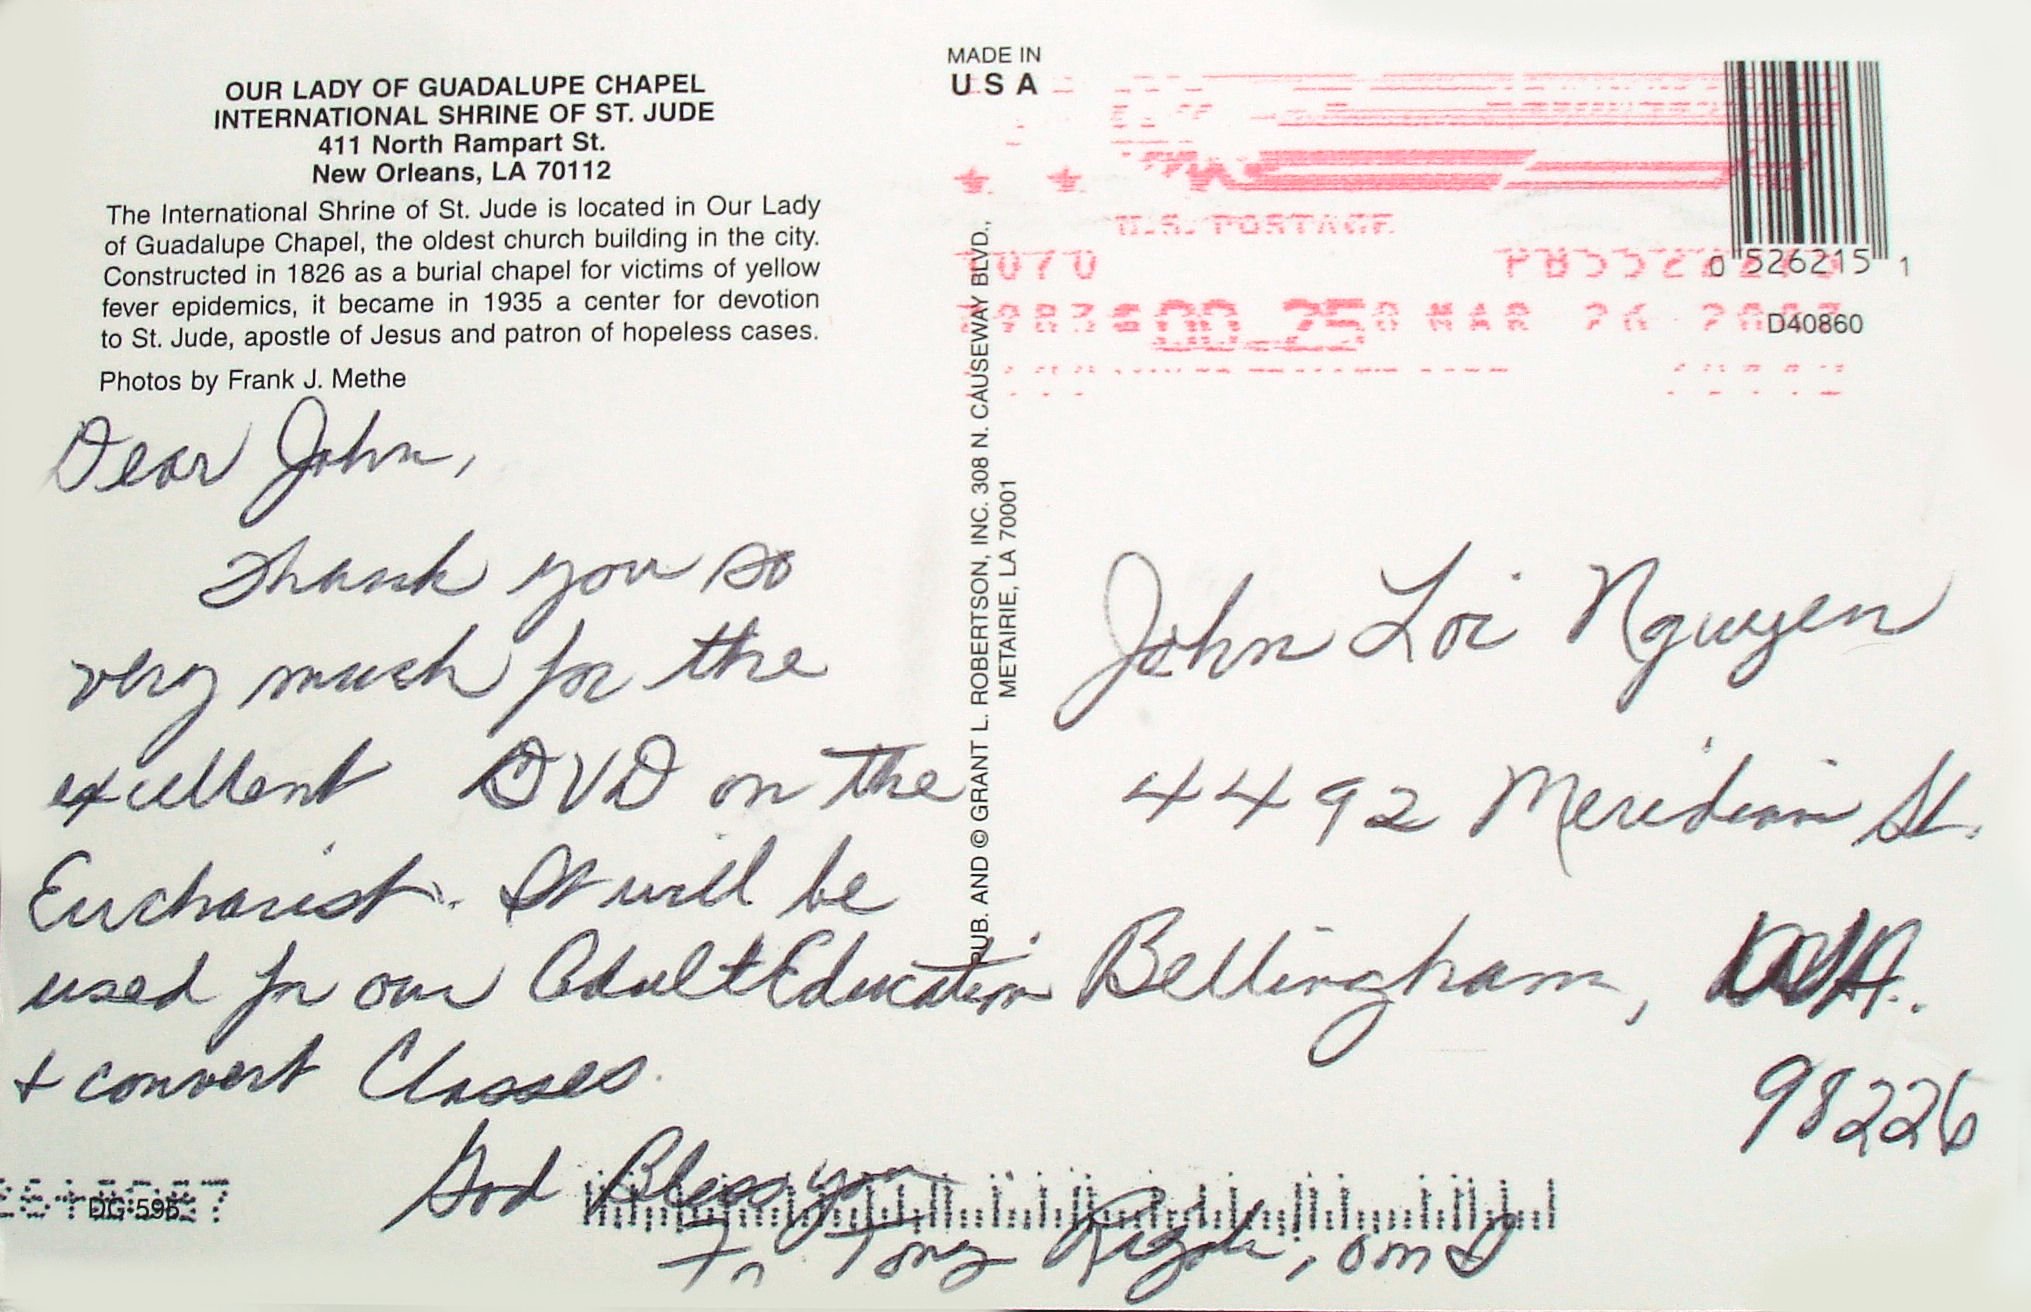 OUR LADY OF GUADALUPE CHAPEL
INTERNATIONAL SHRINE OF ST. JUDE
411 North Rampart St.
New Orleans, LA 70112
The International Shrine of St. Jude is located in Our Lady
of Guadalupe Chapel, the oldest church building in the city.
Constructed in 1826 as a burial chapel for victims of yellow
fever epidemics, it became in 1935 a center for devotion
to St. Jude, apostle of Jesus and patron of hopeless cases.
Photos by Frank J. Methe
Dear John,
Thank you so
very much for the
excellent DVD on the
Eucharist. It will be
used for our Adult Education
+ convert Classes.
God Bless you
Fr Tony Rigoli, omI
DG-595
MADE IN
USA
PUB. AND © GRANT L. ROBERTSON, INC. 308 N. CAUSEWAY BLVD.,
METAIRIE, LA 70001
U.S. POSTAGE
00.25 MAR 26
0 526215 1
D40860
John Loi Nguyen
4492 Meridian St.
Bellingham, WA.
98226